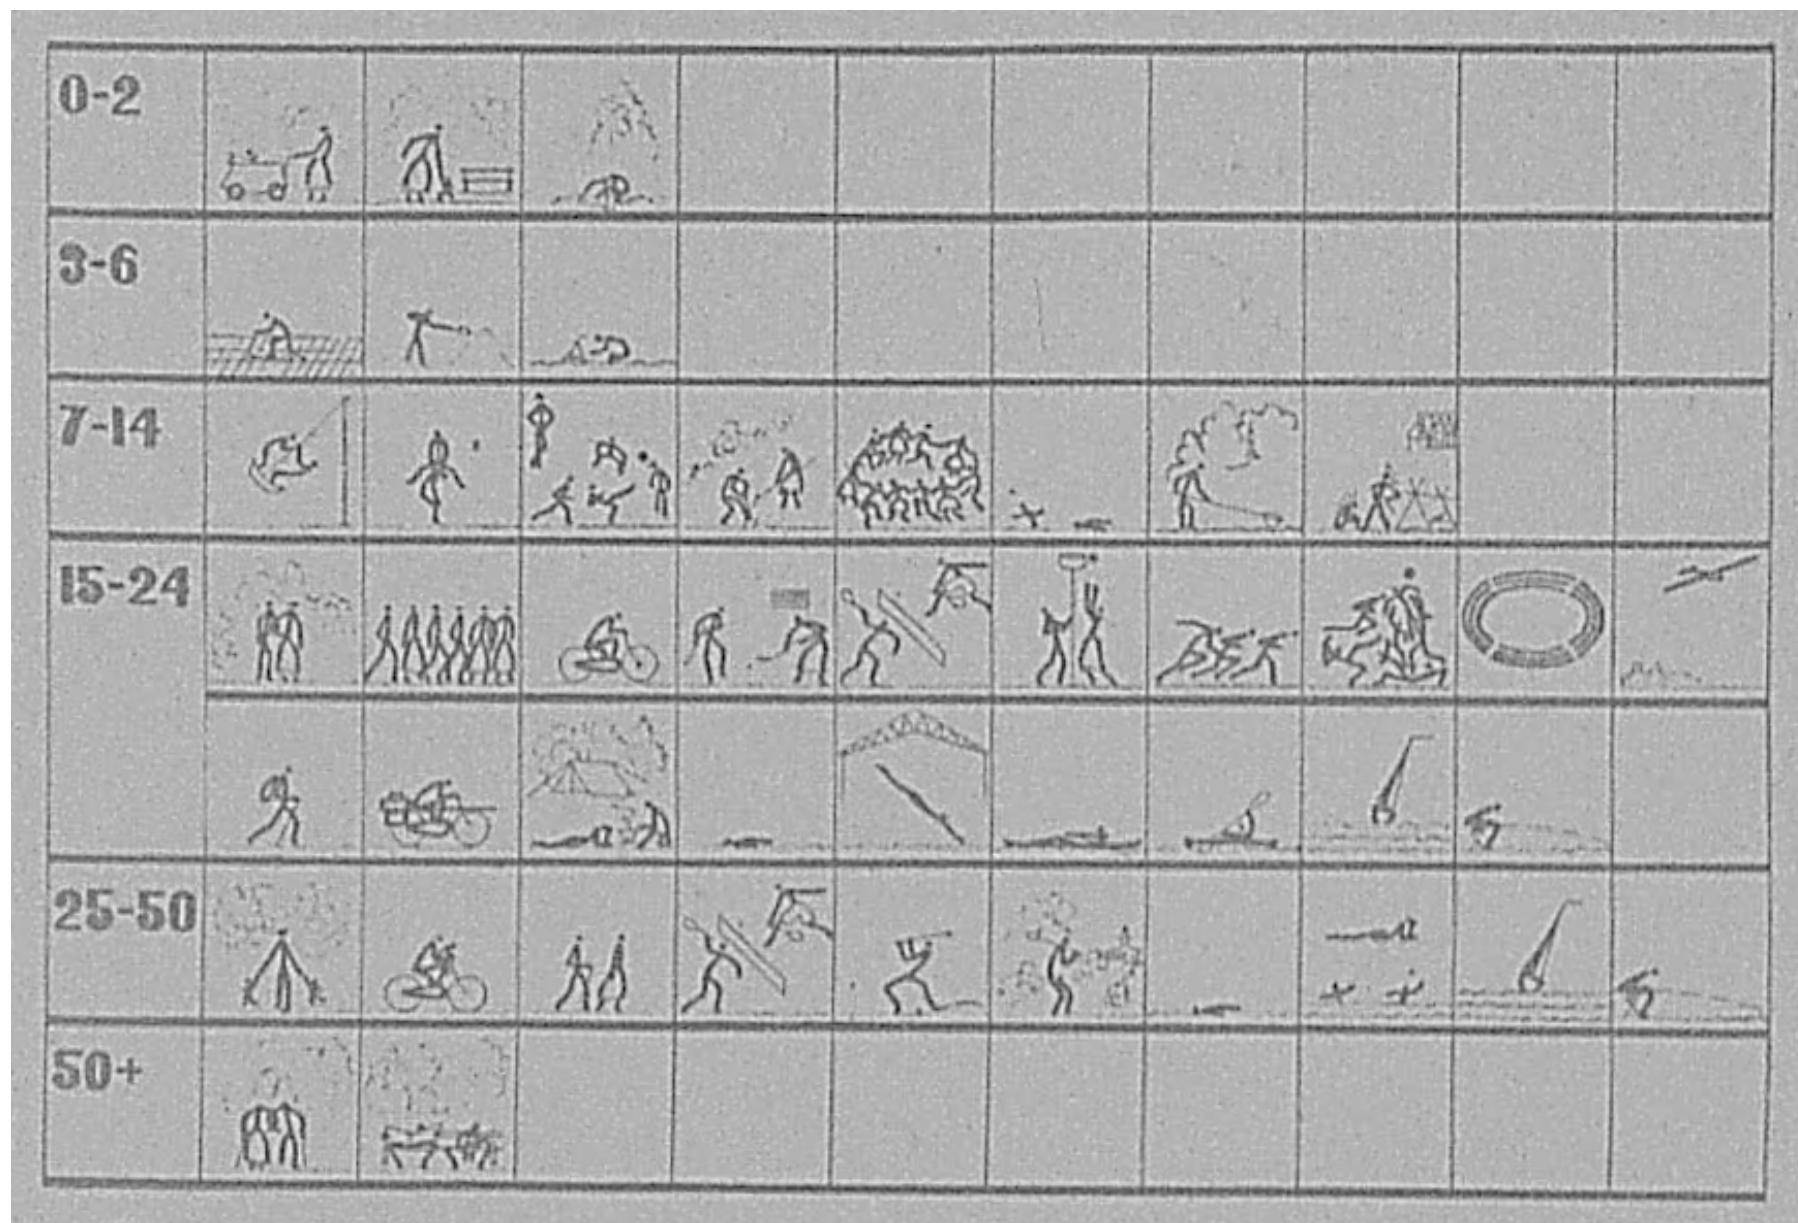 0-2
3-6
7-14
15-24
25-50
50+